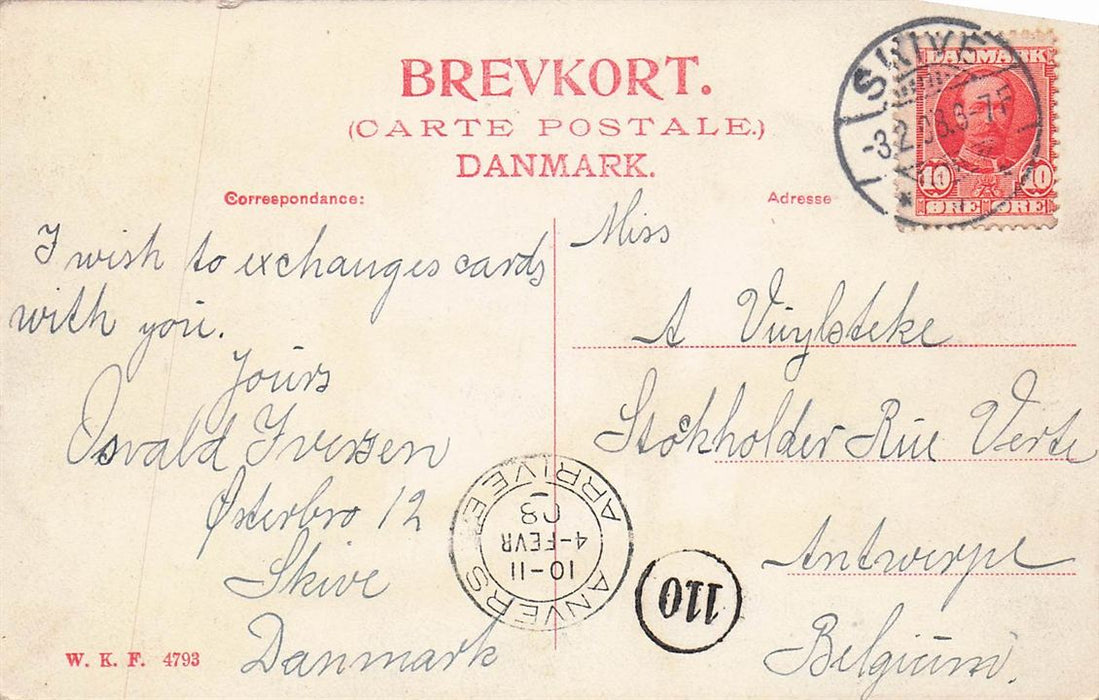 BREVKORT.
(CARTE POSTALE.)
DANMARK.
Correspondance:
Adresse
SKIVE
-3.2.08.6-7F
DANMARK
10 10
ØRE ØRE
I wish to exchanges cards
with you.
Yours
Osvald Iversen
Østerbro 12
Skive
Danmark
Miss
A Vuylsteke
Stokholder Rue Verte
Antwerpe
Belgium.
ANVERS
10-11
4-FEVR
08
ARRIVEE
110
W. K. F. 4793